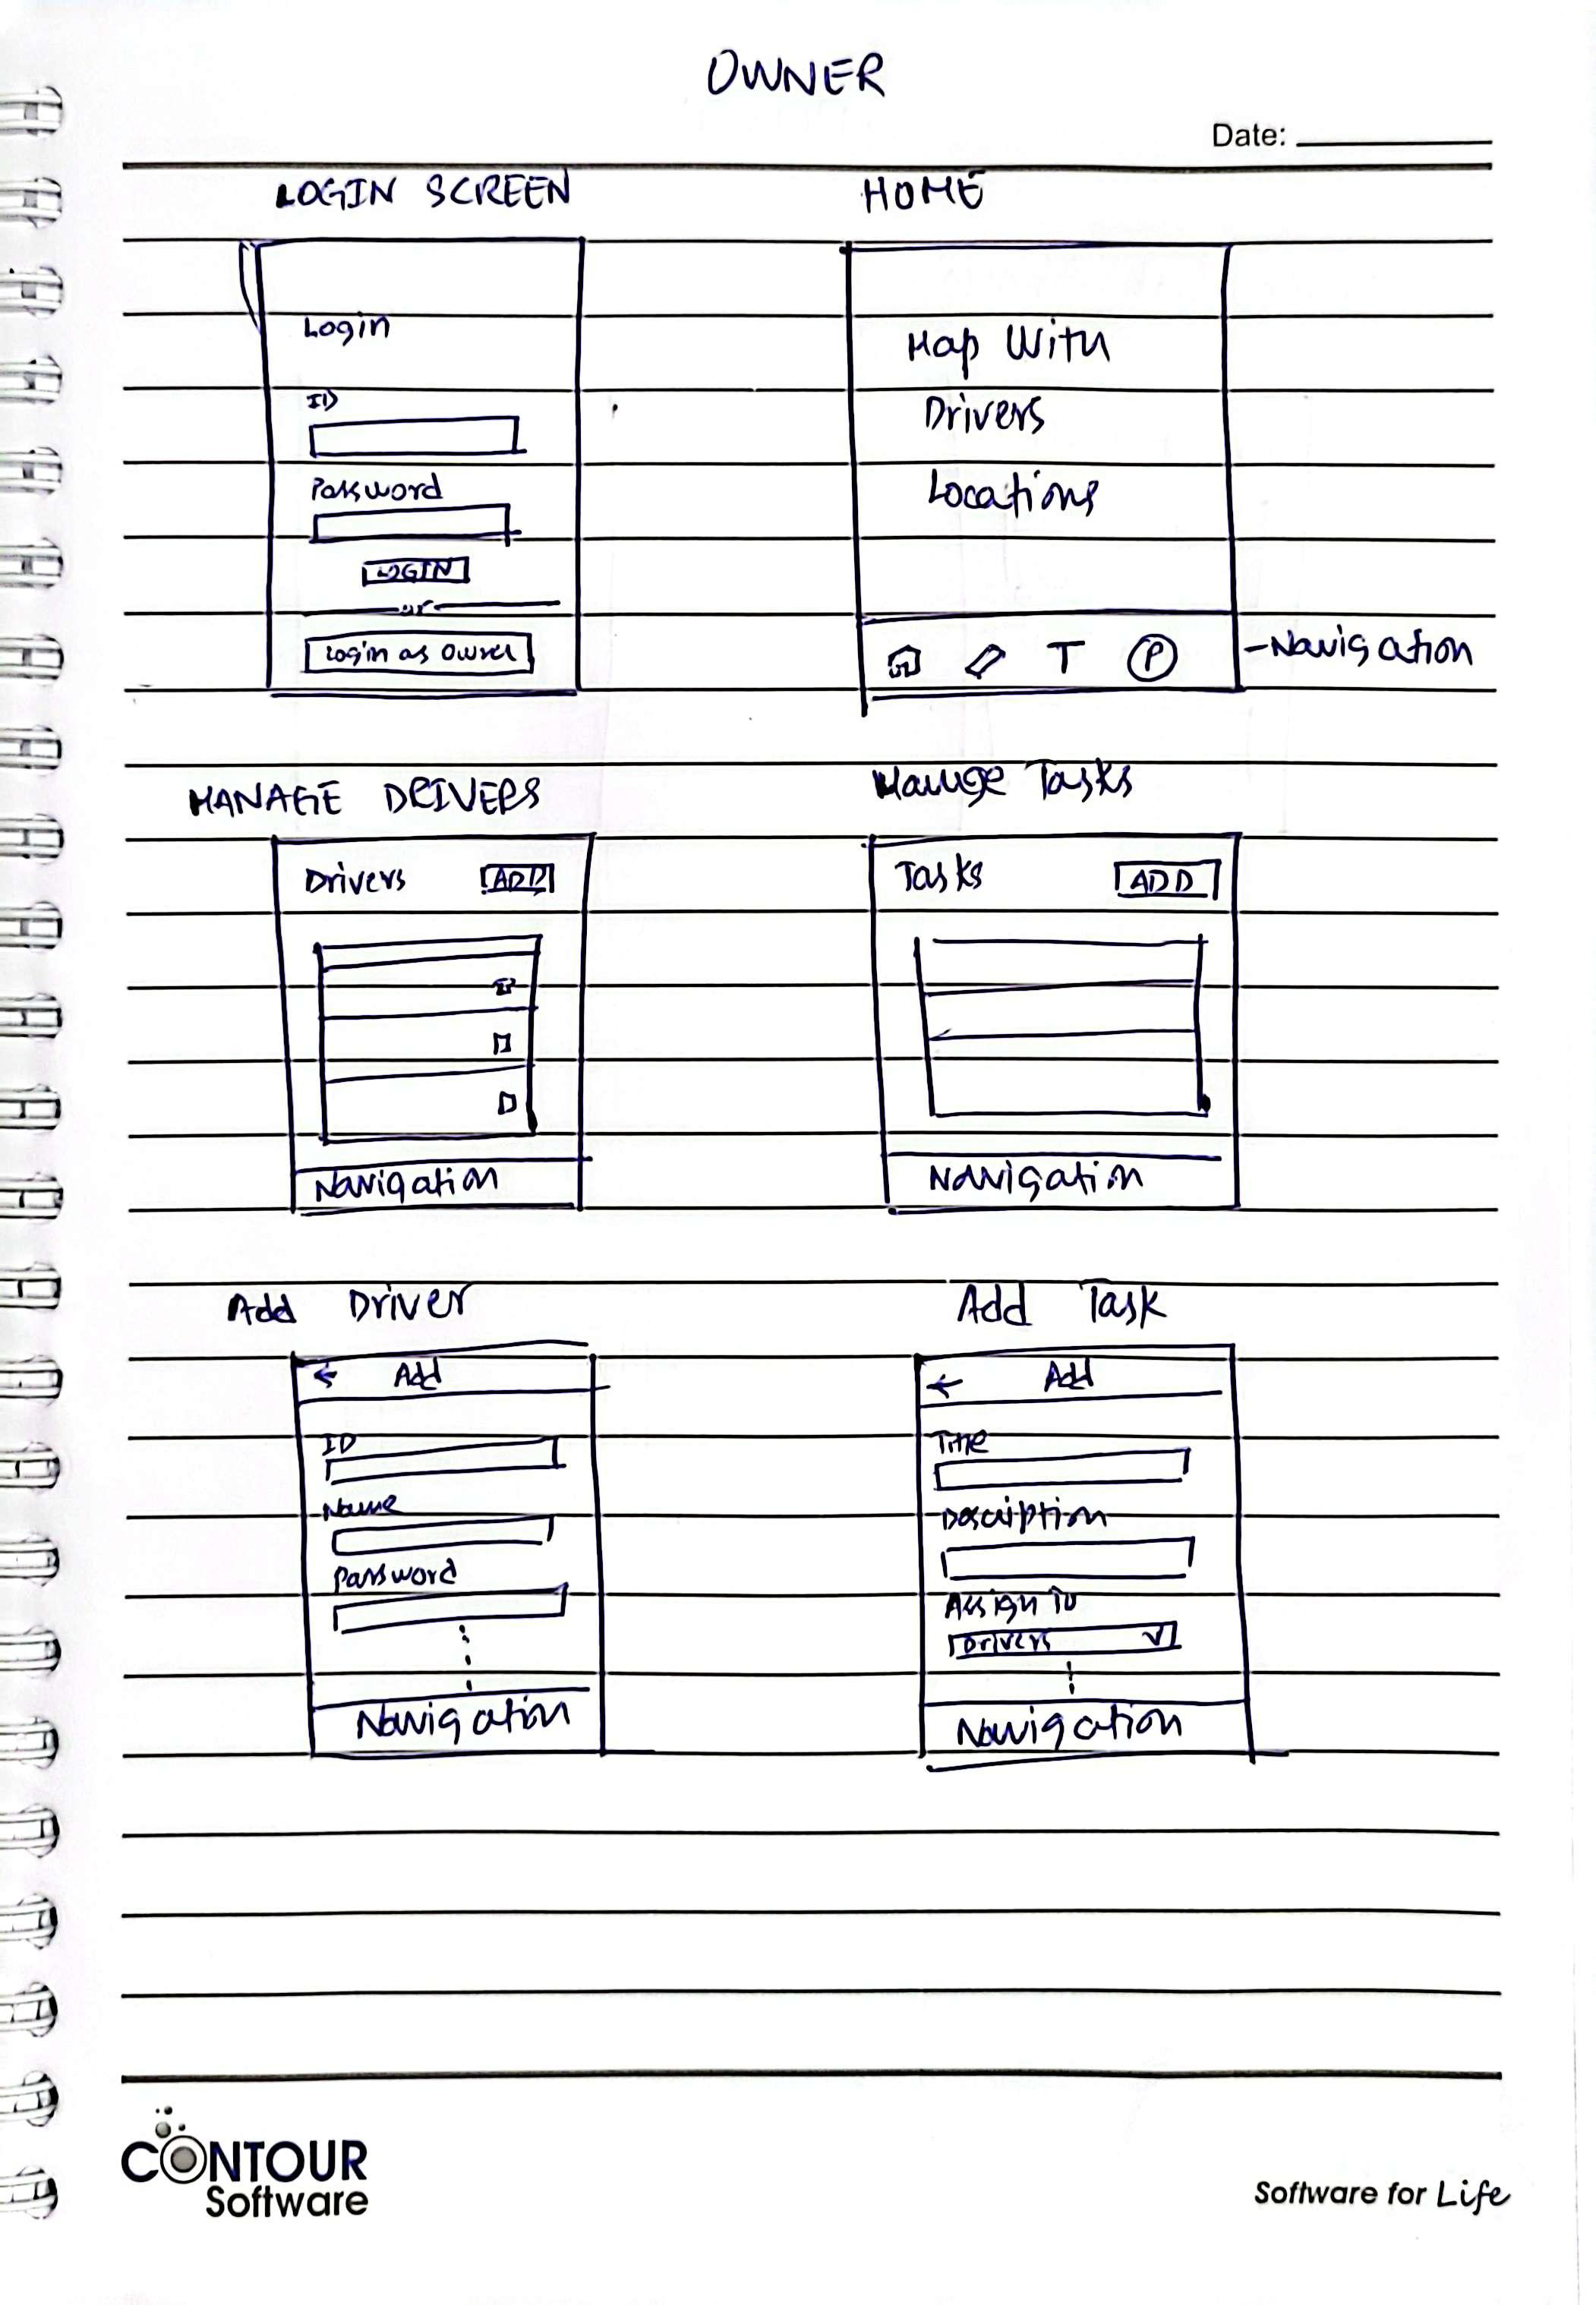 OWNER
Date:
LOGIN SCREEN
Login
ID
Password
LOGIN
or
Login as Owner
HOME
Map With
Drivers
Locations
T P
-Navigation
MANAGE DRIVERS
Drivers ADD
Navigation
Manage Tasks
Tasks ADD
Navigation
Add Driver
← Add
ID
Name
Password
Navigation
Add Task
← Add
Title
Description
Assign To
Drivers
Navigation
CONTOUR
Software
Software for Life